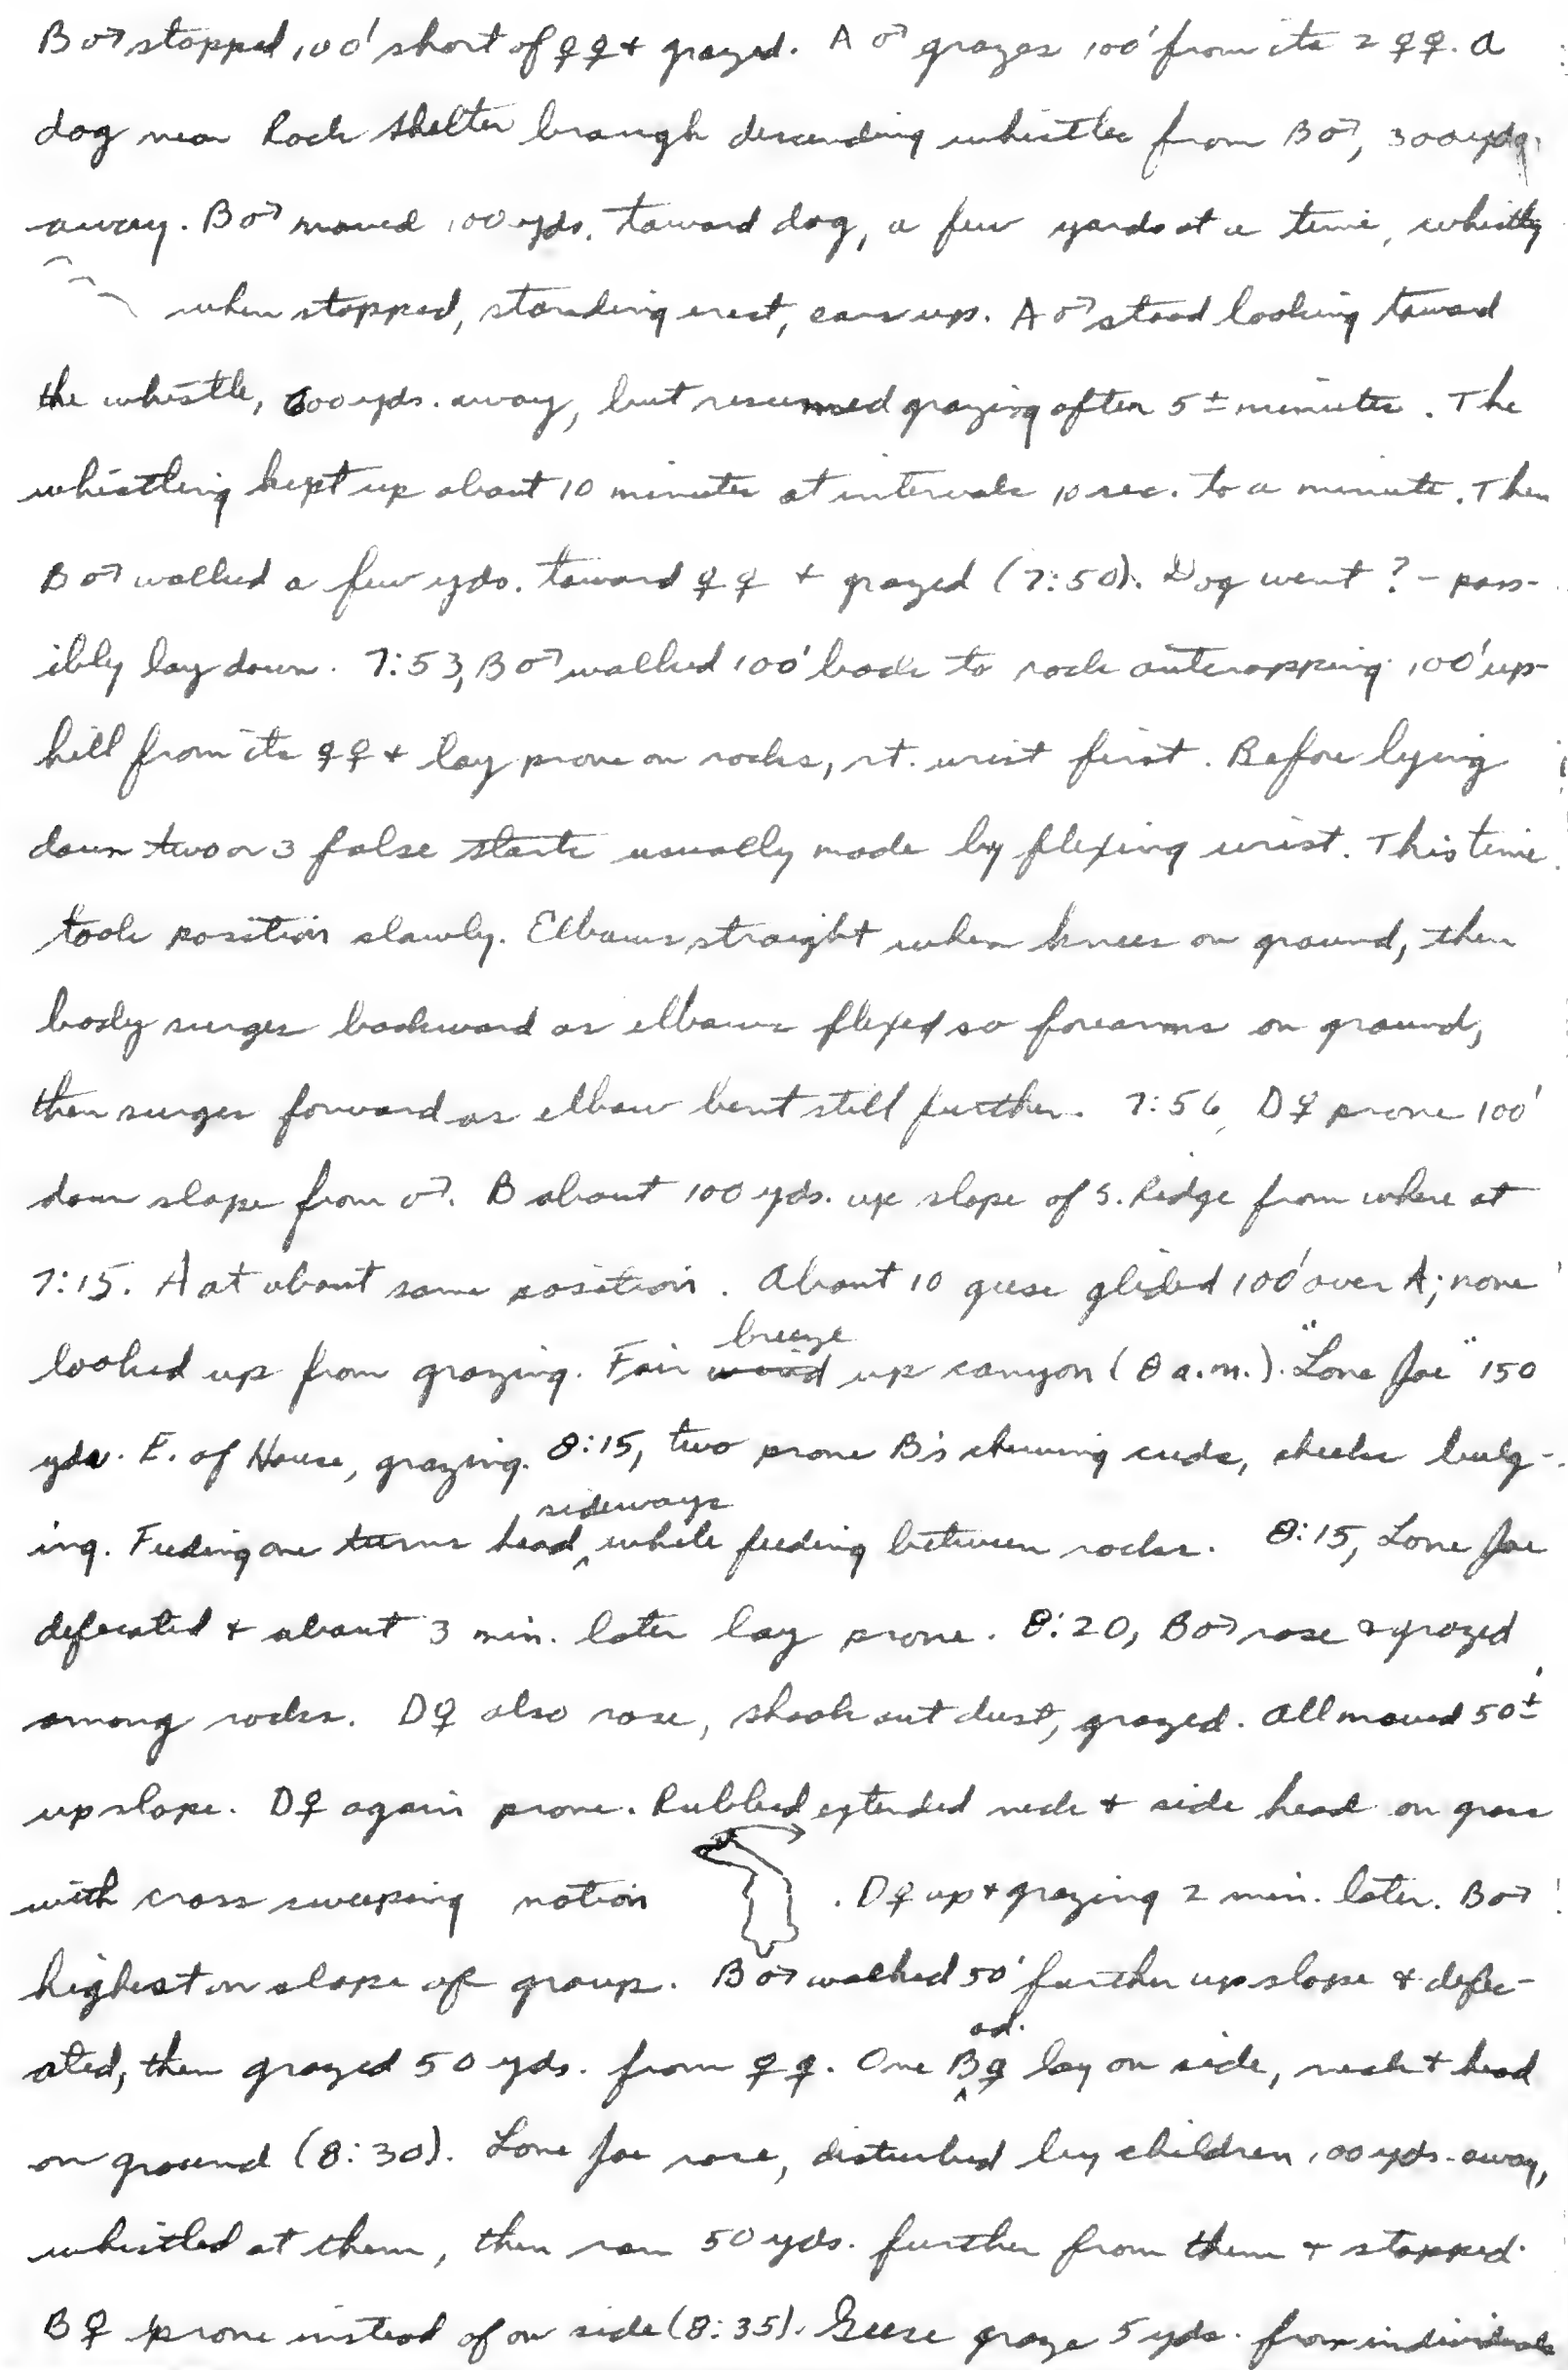 B♂ stopped 100' short of ♀♀ + grazed. A♂ grazes 100' from its 2 ♀♀. A
dog near Rock Shelter brough descending whistles from B♂, 300 yds.
away. B♂ moved 100 yds. toward dog, a few yards at a time, whistlg
when stopped, standing erect, ears up. A♂ stood looking toward
the whistle, 600 yds. away, but resumed grazing after 5± minutes. The
whistling kept up about 10 minutes at intervals 10 sec. to a minute. Then
B♂ walked a few yds. toward ♀♀ + grazed (7:50). Dog went? - poss-
ibly lay down. 7:53, B♂ walked 100' back to rock outcropping 100' up-
hill from its ♀♀ + lay prone on rocks, rt. wrist first. Before lying
down two or 3 false starts usually made by flexing wrist. This time
took position slowly. Elbows straight when knees on ground, then
body surges backward as elbows flexed so forearms on ground,
then surges forward as elbow bent still further. 7:56, D♀ prone 100'
down slope from ♂. B about 100 yds. up slope of S. Ridge from where at
7:15. A at about same position. About 10 geese glided 100' over A; none
looked up from grazing. Fair breeze up canyon (8 a.m.). "Lone Joe" 150
yds. E. of House, grazing. 8:15, two prone B's chewing cuds, cheeks bulg-
ing. Feeding one turns head sideways while feeding between rocks. 8:15, Lone Joe
defecated + about 3 min. later lay prone. 8:20, B♂ rose & grazed
among rocks. D♀ also rose, shook out dust, grazed. All moved 50±'
up slope. D♀ again prone. Rubbed extended neck + side head on grass
with cross sweeping motion . D♀ up + grazing 2 min. later. B♂
highest on slope of group. B♂ walked 50' further up slope + defec-
ated, then grazed 50 yds. from ♀♀. One ad. B♀ lay on side, neck + head
on ground (8:30). Lone Joe rose, disturbed by children 100 yds. away,
whistled at them, then ran 50 yds. further from them + stopped.
B♀ prone instead of on side (8:35). Geese graze 5 yds. from individuals